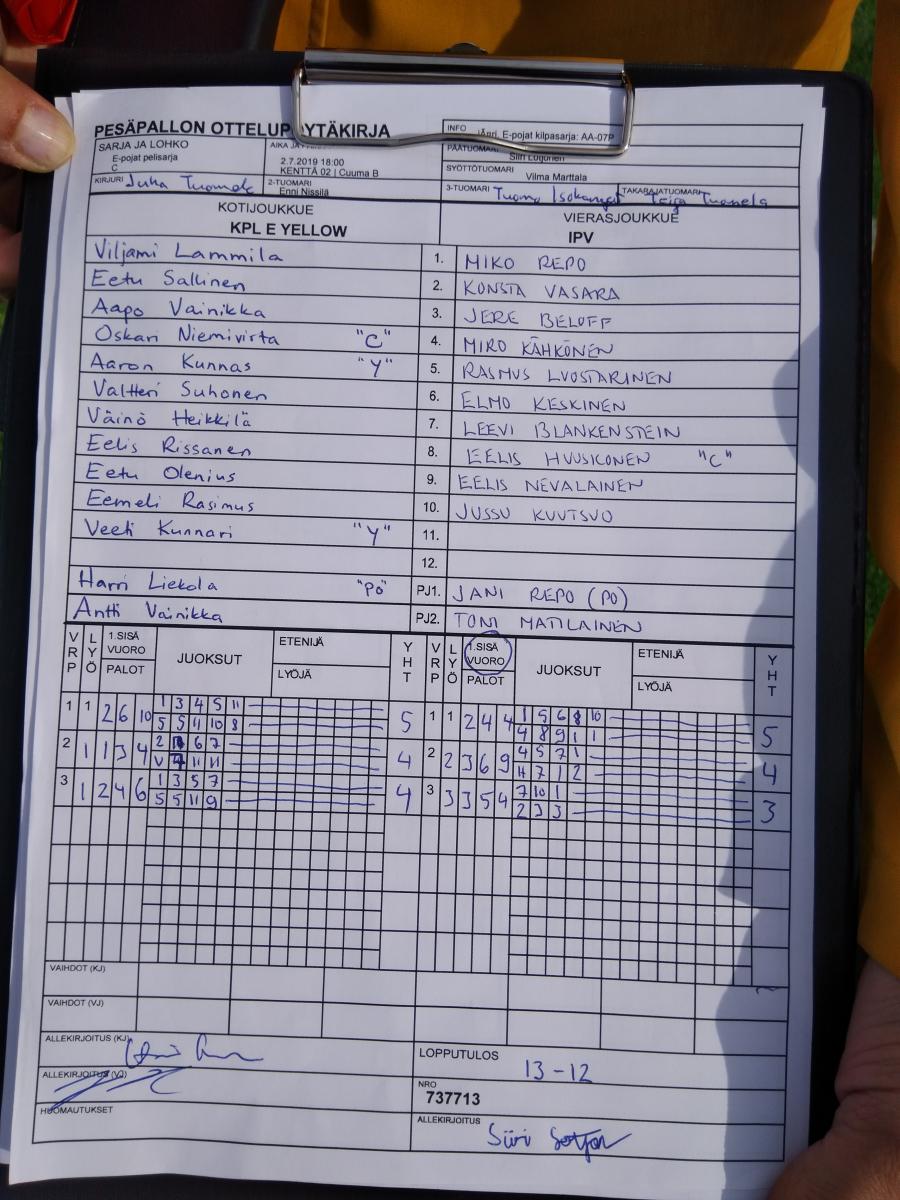 PESÄPALLON OTTELUPÖYTÄKIRJA
INFO
E-pojat kilpasarja: AA-07P
SARJA JA LOHKO
E-pojat pelisarja
C
2.7.2019 18:00
KENTTÄ 02 | Cuuma B
PÄÄTUOMARI
SYÖTTÖTUOMARI
Vilma Marttala
KIRJURI Juha
2-TUOMARI
Enni Nissilä
3-TUOMARI Tuomo
TAKARAJATUOMARI Tuomela
KOTIJOUKKUE
KPL E YELLOW
VIERASJOUKKUE
IPV
Viljami Lammila 1. MIKO REPO
Eetu Sallinen 2. KONSTA VASARA
Aapo Vainikka 3. JERE BELOFF
Oskari Niemivirta "C" 4. MIRO KÄHKÖNEN
Aaron Kunnas "Y" 5. RASMUS LUOSTARINEN
Valtteri Suhonen 6. ELMO KESKINEN
Väinö Heikkilä 7. LEEVI BLANKENSTEIN
Eelis Rissanen 8. EELIS HUUSKONEN "C"
Eetu Olenius 9. EELIS NEVALAINEN
Eemeli Rasimus 10. JUSSU KUUTSUO
Veeti Kunnari "Y" 11.
12.
Harri Liekola "PO" PJ1. JANI REPO (PO)
Antti Vainikka PJ2. TONI MATILAINEN
VRP LYÖ 1.SISÄ VUORO PALOT JUOKSUT ETENIJÄ LYÖJÄ YHT VRP LYÖ 1.SISÄ VUORO PALOT JUOKSUT ETENIJÄ LYÖJÄ YHT
1 1 2 6 10 1 3 4 5 11 5 1 1 2 4 4 1 5 6 8 10 5
5 5 11 10 8 4 8 9 1 1
2 1 1 3 4 2 6 7 4 2 2 3 6 9 4 5 7 1 4
V 11 11 4 7 1 2
3 1 2 4 6 1 3 5 7 4 3 3 3 5 4 7 10 1 3
5 5 11 9 2 3 3
VAIHDOT (KJ)
VAIHDOT (VJ)
ALLEKIRJOITUS (KJ)
ALLEKIRJOITUS (VJ)
HUOMAUTUKSET
LOPPUTULOS
13-12
NRO
737713
ALLEKIRJOITUS
Siiri